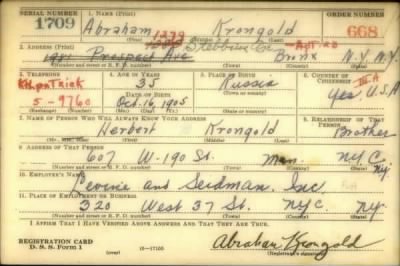 SERIAL NUMBER 1. NAME (Print) ORDER NUMBER
1709 Abraham Krongold 668
(First) (Middle) (Last)
1379 Stebbins Ave
2. ADDRESS (Print)
Prospect Ave Bronx N.Y. N.Y.
(Number and street or R. F. D. number) (Town) (County) (State)
3. TELEPHONE 4. AGE IN YEARS 5. PLACE OF BIRTH 6. COUNTRY OF CITIZENSHIP
Kilpatrick 35 Russia
DATE OF BIRTH
5-9760 Oct. 16, 1905 Yes, U.S.A
7. NAME OF PERSON WHO WILL ALWAYS KNOW YOUR ADDRESS 8. RELATIONSHIP OF THAT PERSON
Herbert Krongold Brother
9. ADDRESS OF THAT PERSON
607 W. 190 St. Man. N.Y.C. NY.
(Number and street or R. F. D. number) (Town) (County) (State)
10. EMPLOYER'S NAME
Levine and Seidman, Inc.
11. PLACE OF EMPLOYMENT OR BUSINESS
320 West 37 St. NYC. N.Y.
(Number and street or R. F. D. number) (Town) (County) (State)
I AFFIRM THAT I HAVE VERIFIED ABOVE ANSWERS AND THAT THEY ARE TRUE.
REGISTRATION CARD
D. S. S. Form 1 (over) Abraham Krongold
(Registrant's signature)